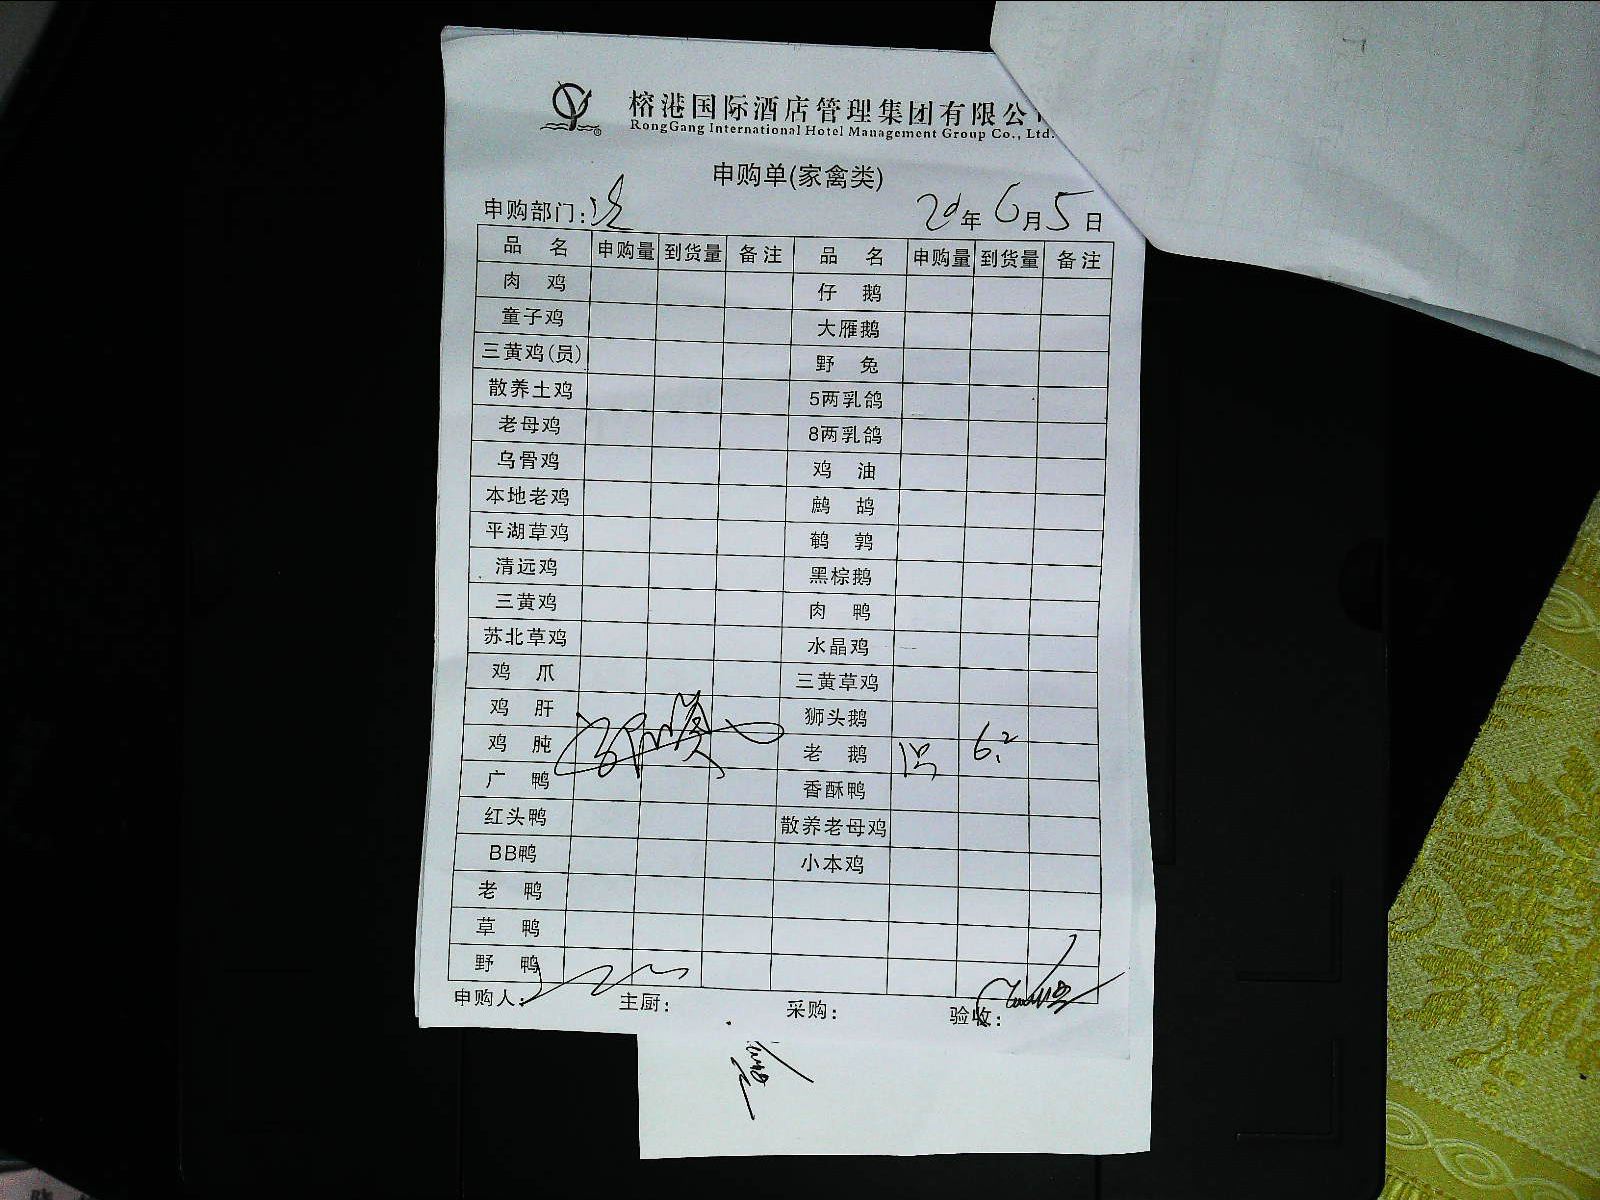 榕港国际酒店管理集团有限公
RongGang International Hotel Management Group Co., Ltd.
申购单(家禽类)
申购部门: 20年6月5日
品 名 申购量 到货量 备注 品 名 申购量 到货量 备注
肉 鸡 仔 鹅
童子鸡 大雁鹅
三黄鸡(员) 野 兔
散养土鸡 5两乳鸽
老母鸡 8两乳鸽
乌骨鸡 鸡 油
本地老鸡 鹧 鸪
平湖草鸡 鹌 鹑
清远鸡 黑棕鹅
三黄鸡 肉 鸭
苏北草鸡 水晶鸡
鸡 爪 三黄草鸡
鸡 肝 狮头鹅
鸡 肫 老 鹅 1只 6.2
广 鸭 香酥鸭
红头鸭 散养老母鸡
BB鸭 小本鸡
老 鸭
草 鸭
野 鸭
申购人: 主厨: 采购: 验收: